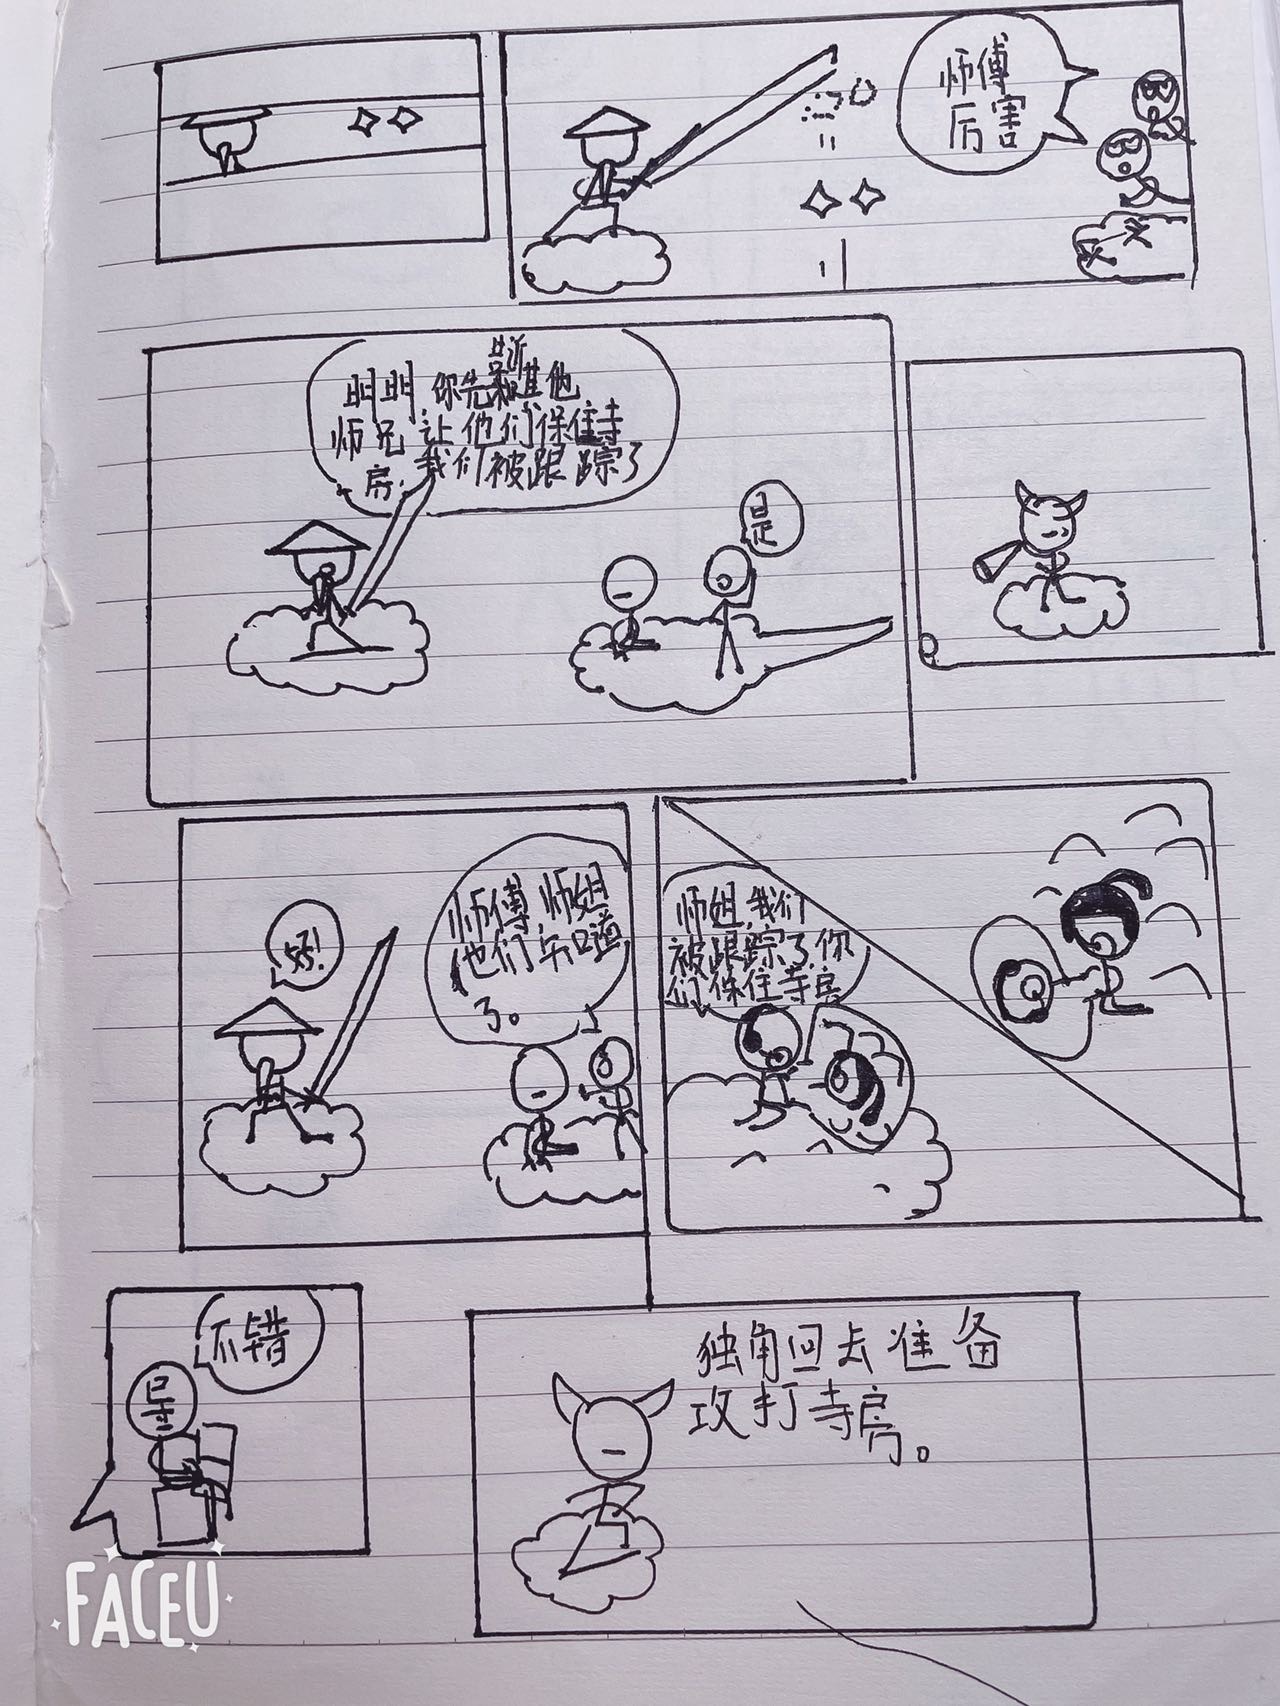 师傅
厉害
告诉
明明,你先和其他
师兄,让他们保住寺
房,我们被跟踪了
是
好!
师傅,师姐
他们知道
了。
师姐,我们
被跟踪了,你
们保住寺房
不错
独角回去准备
攻打寺房。
FACEU